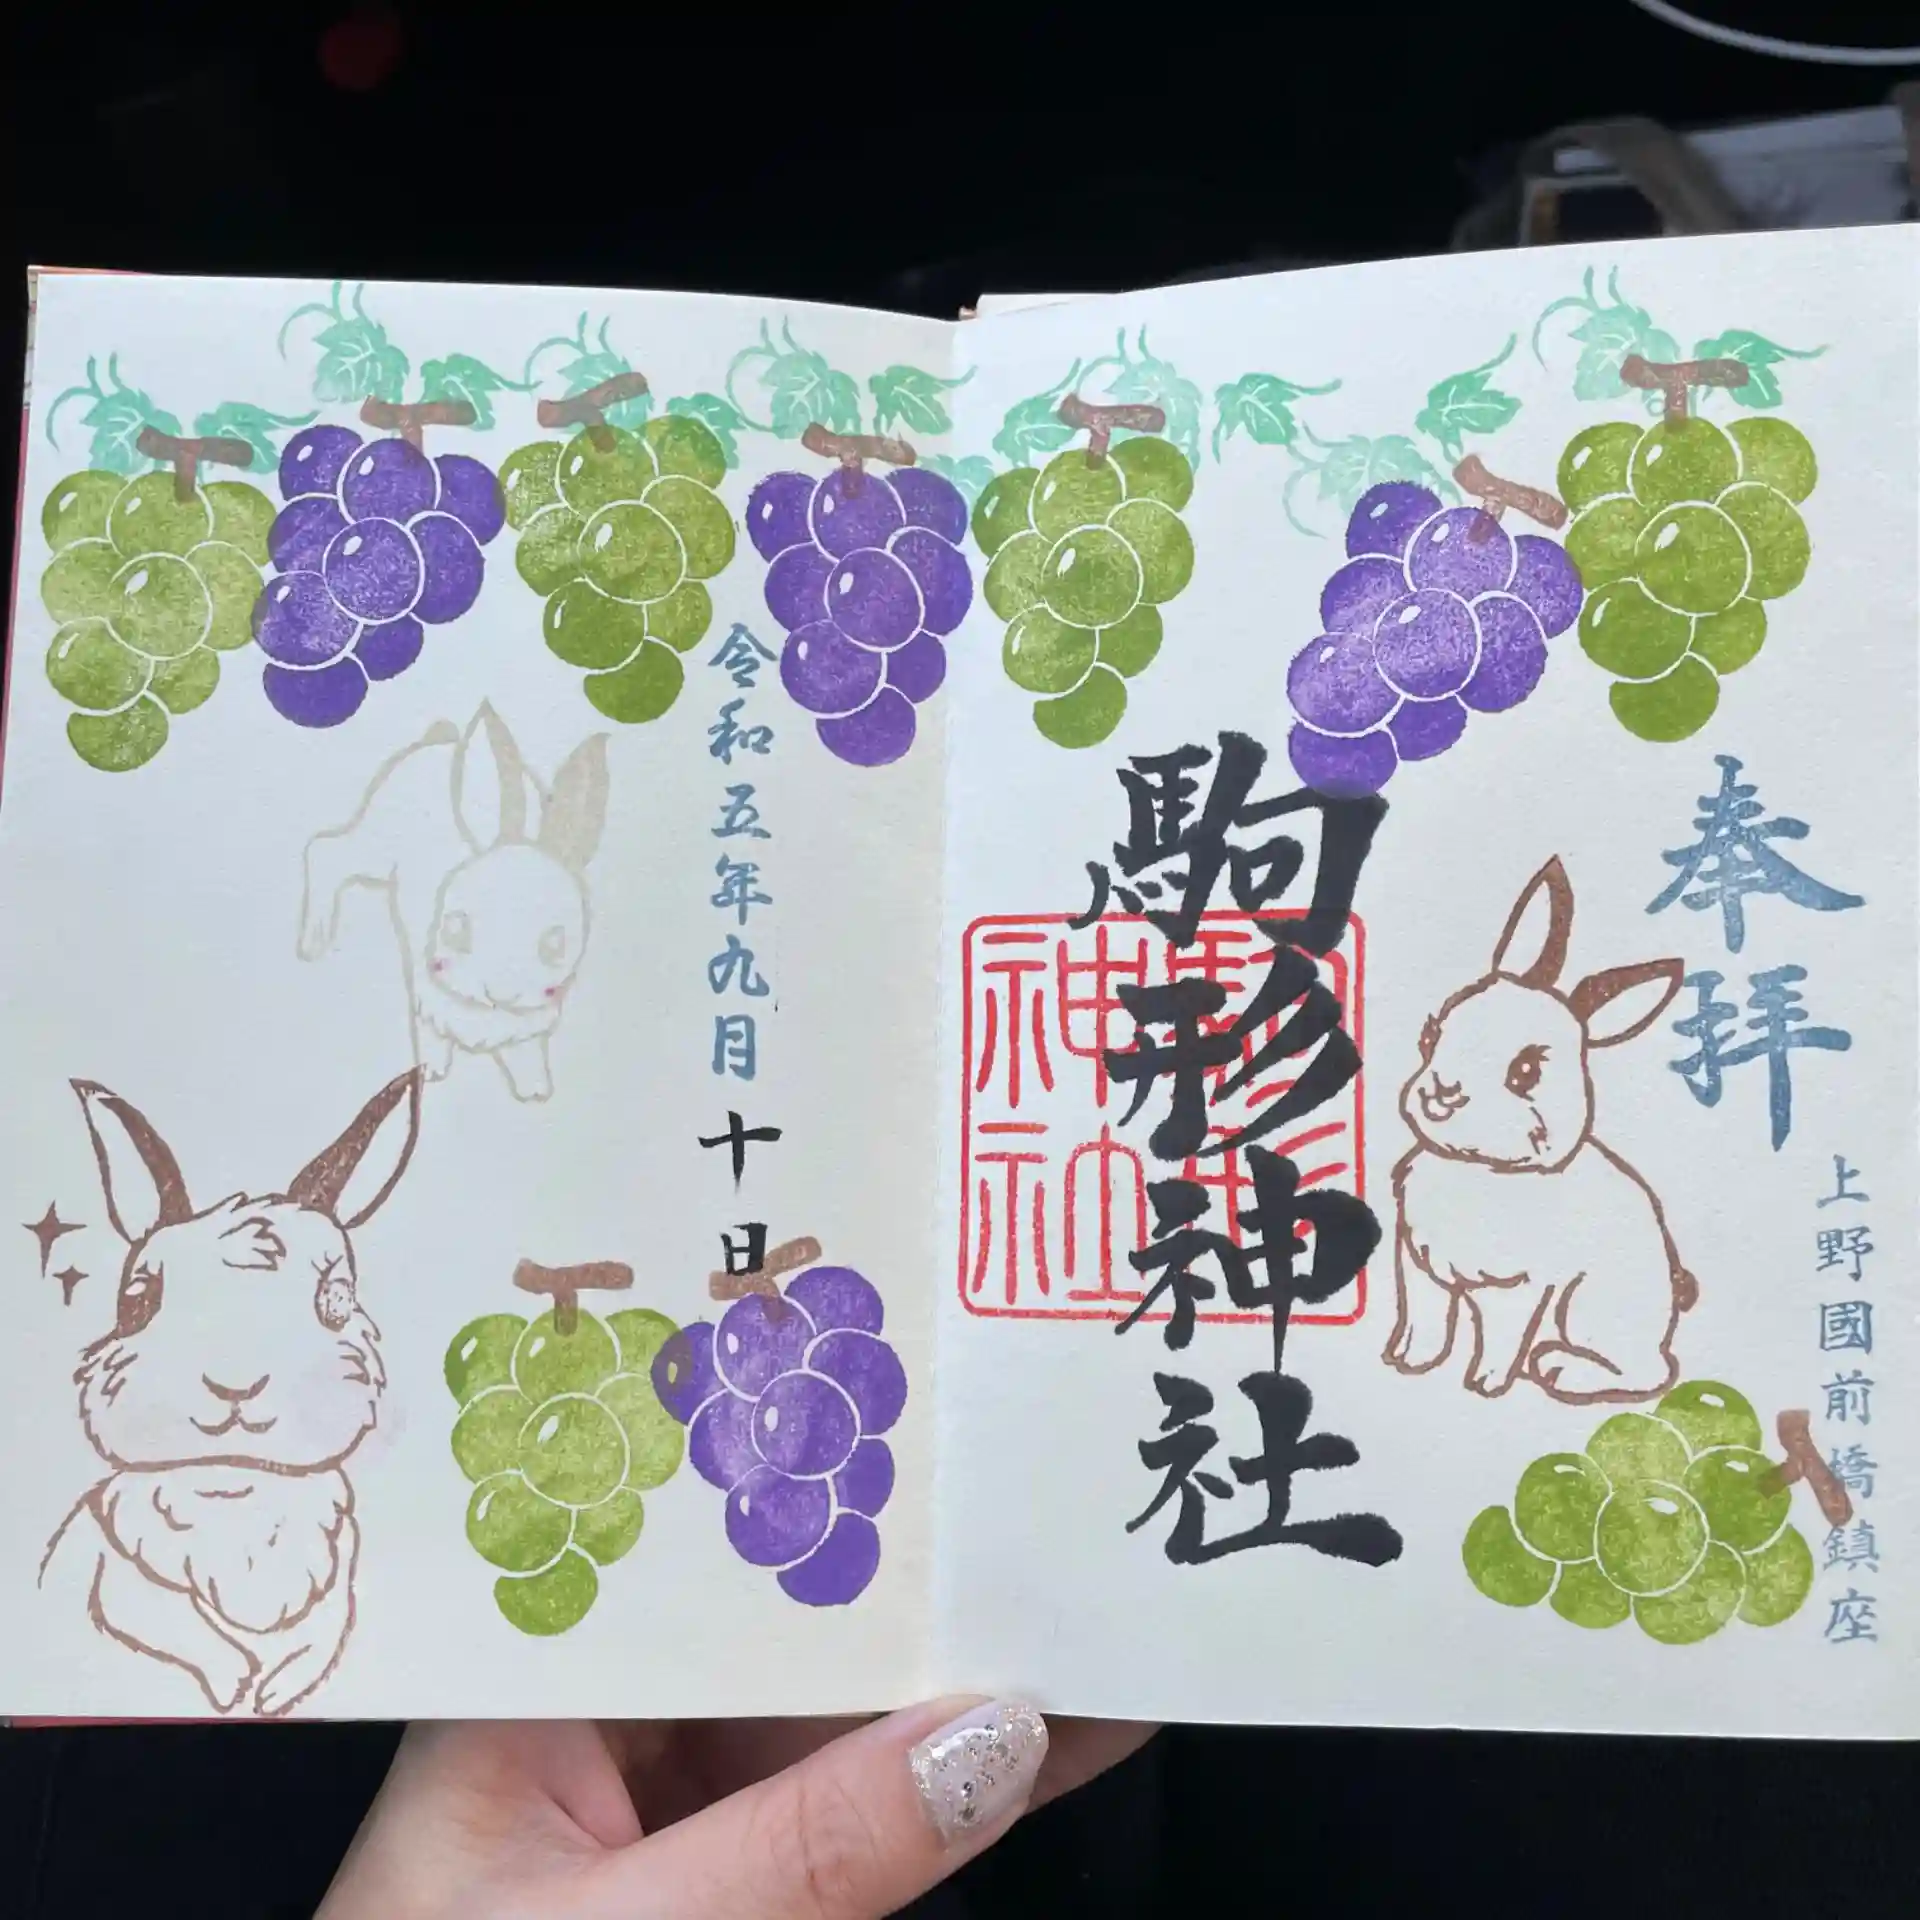 奉拝
上野國前橋鎮座
駒形神社
駒形
神社
令和五年九月十日